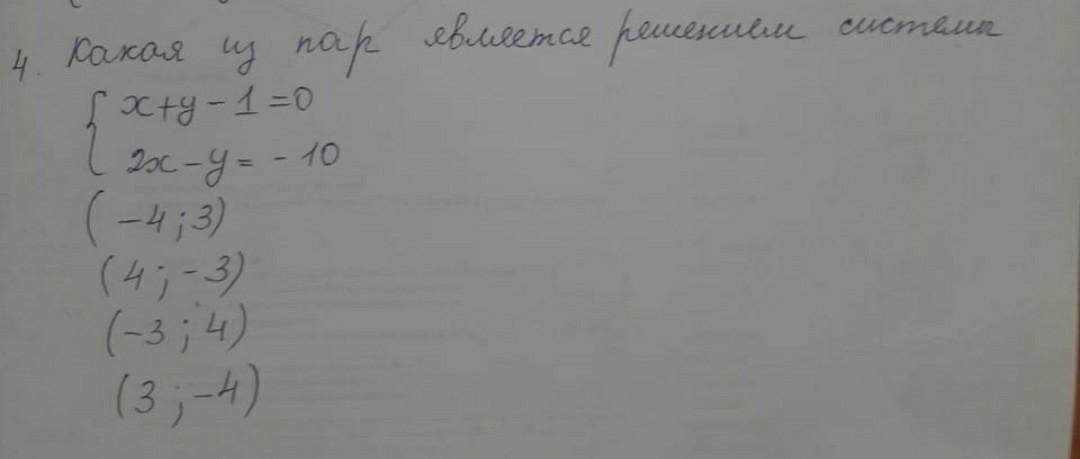 4. Какая из пар является решением системы
{ x+y-1=0
2x-y=-10
(-4;3)
(4;-3)
(-3;4)
(3;-4)